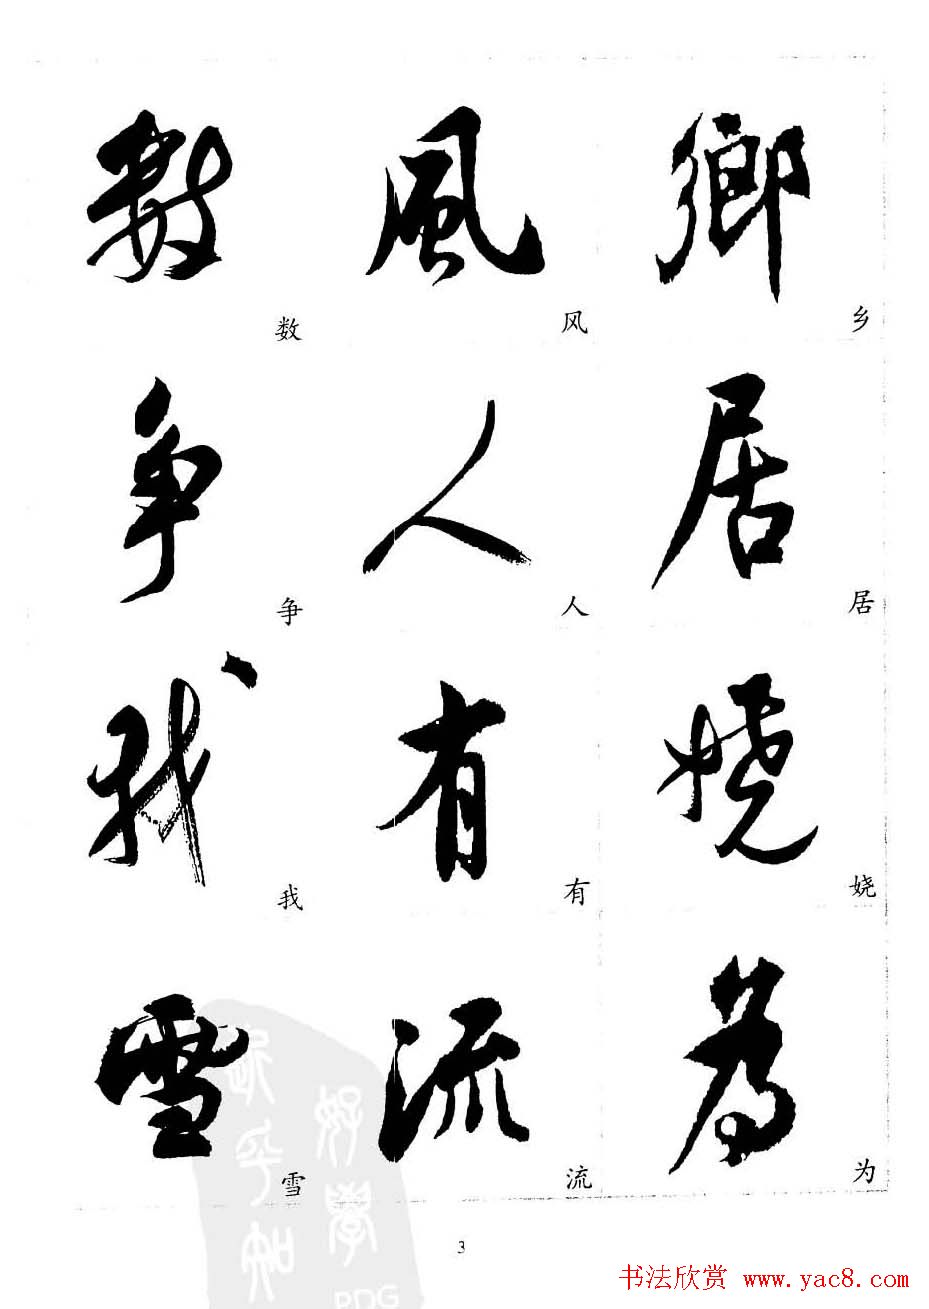 鄉
乡
居
居
娆
娆
為
为
風
风
人
人
有
有
流
流
數
数
争
争
我
我
雪
雪
好學
PDG
3
书法欣赏 www.yac8.com